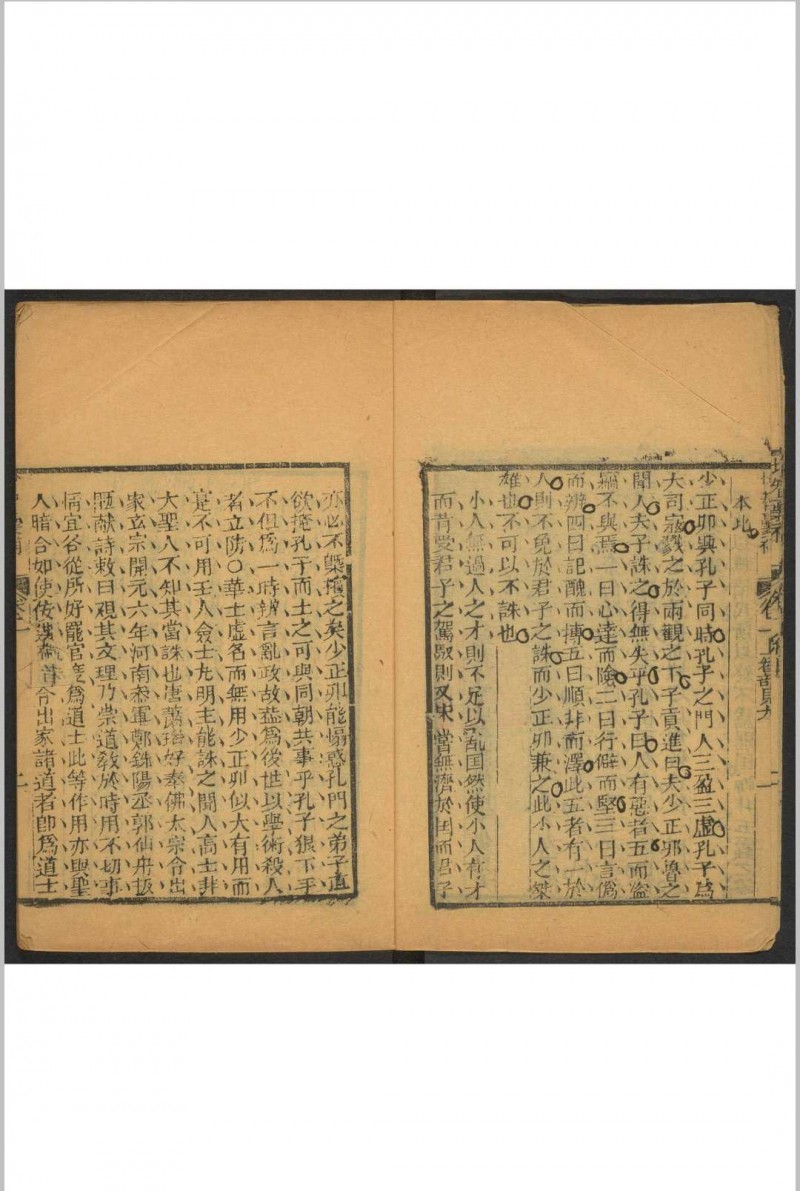 本北
少正卯與孔子同時孔子之門人三盈三虛孔子為
大司寇戮之於兩觀之下子貢進曰夫少正卯魯之
聞人夫子誅之得無失乎孔子曰人有惡者五而盜
竊不與焉一曰心達而險二曰行僻而堅三曰言偽
而辨四曰記醜而博五曰順非而澤此五者有一於
人則不免於君子之誅而少正卯兼之此小人之桀
雄也不可以不誅也
小人無過人之才則不足以亂国然使小人有才
而肯受君子之駕馭則又未嘗無濟於囯而君子
亦必不槩擯之矣少正卯能惑孔門之弟子直
欲掩孔子而上之可與同朝共事乎孔子狠下手
不但為一時辨言亂政故蓋為後世以學術殺人
者立防○華士虛名而無用少正卯似大有用而
寔不可用壬人僉士凡明主能誅之聞人高士非
大聖人不知其當誅也唐蕭瑀好奉佛太宗令出
家玄宗開元六年河南叅軍鄭銑陽丞郭仙舟投
匭献詩敕曰覌其文理乃崇道教於時用不切事
情宜各從所好罷官度為道士此等作用亦與聖
人暗合如使佞者令出家諸道者即為道士
二